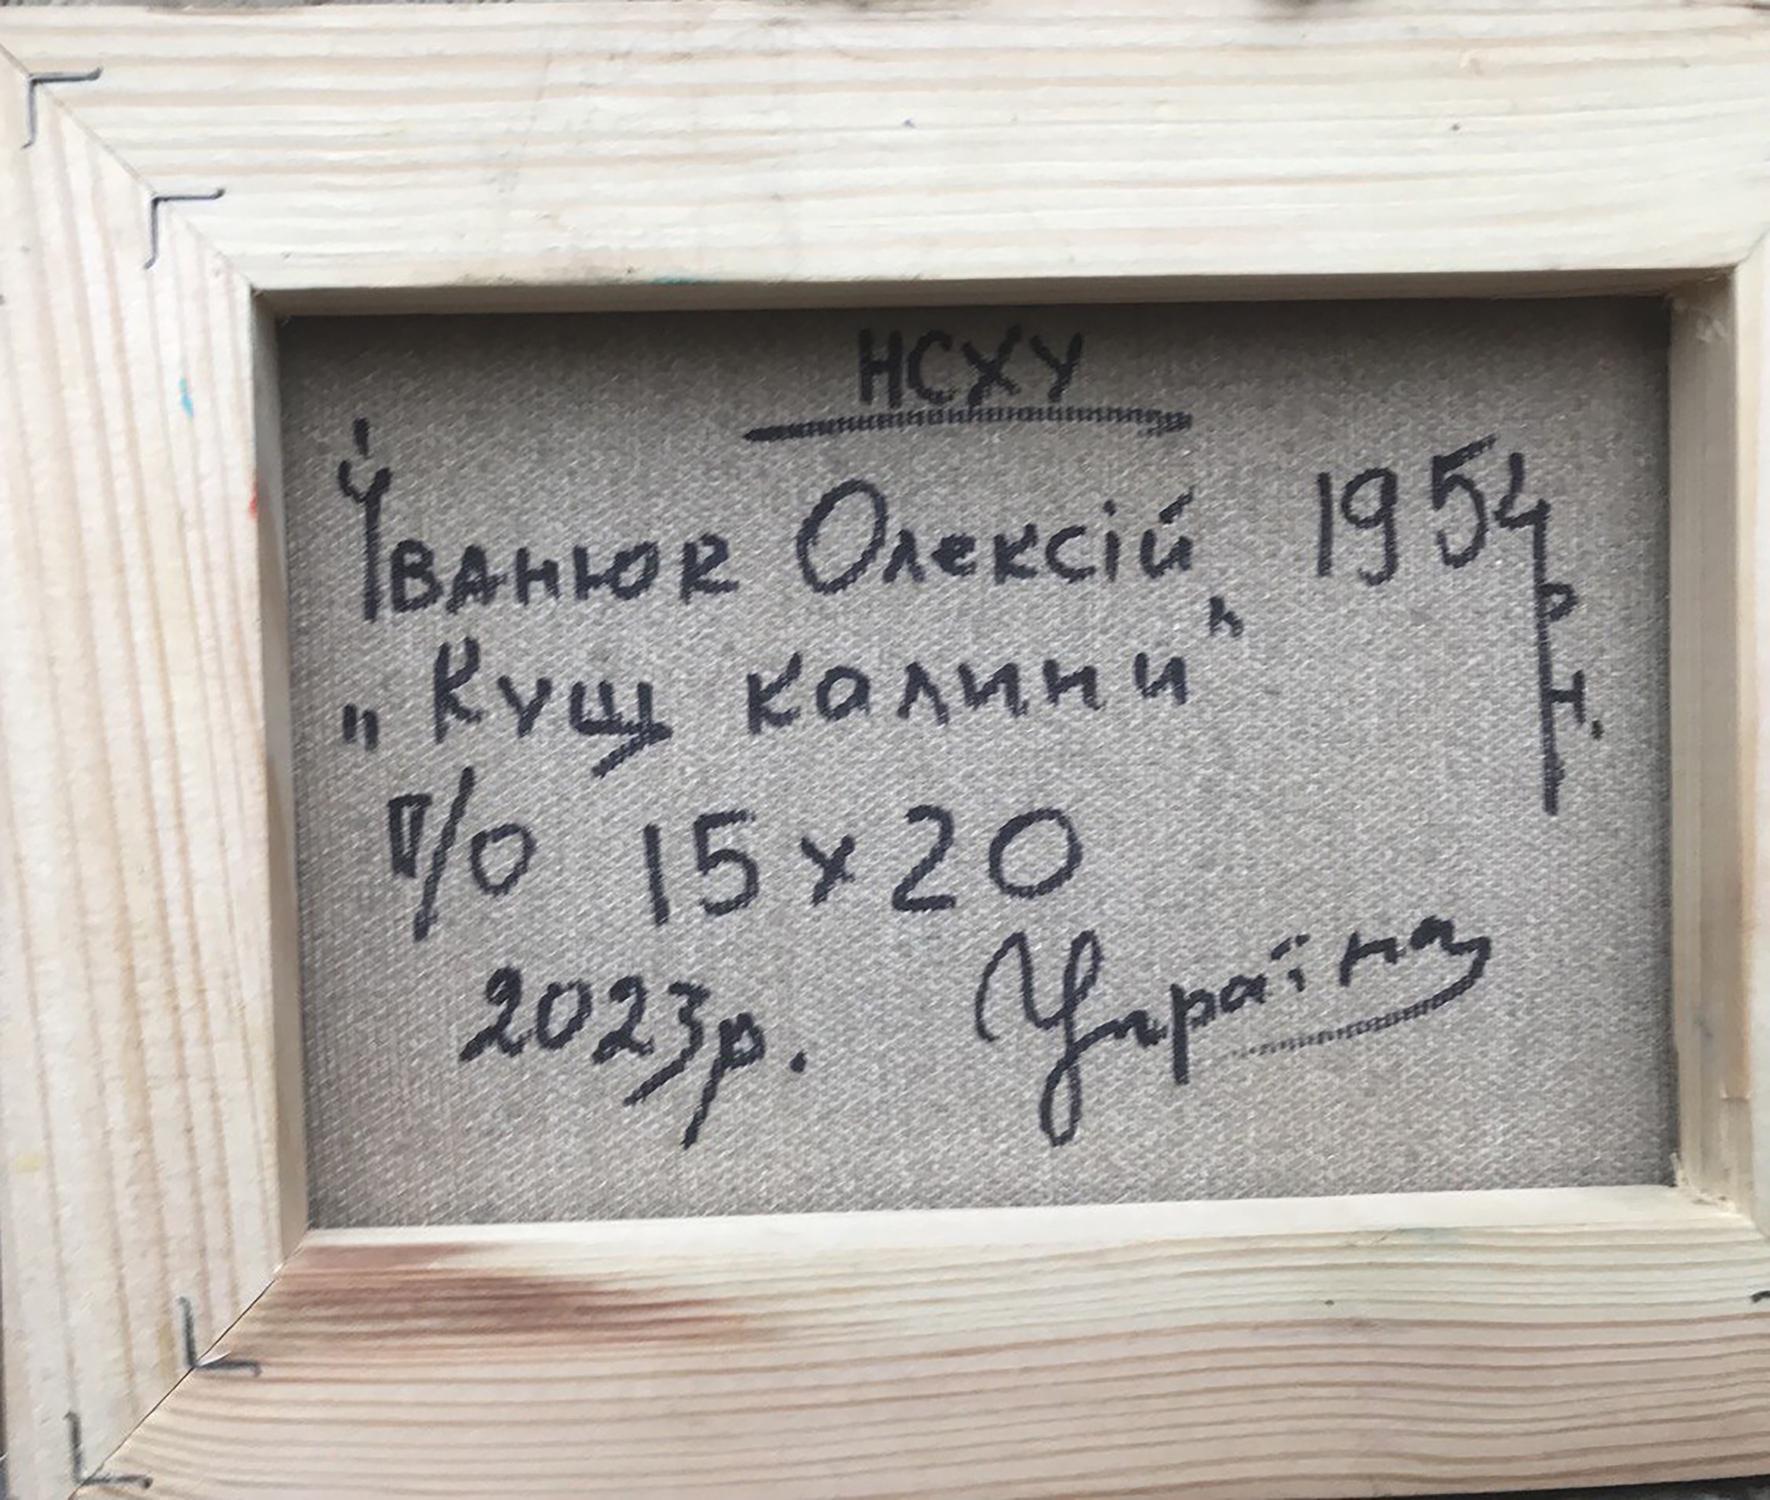 НСХУ
Іванюк Олексій 1954 р.н.
„Кущ калини"
П/О 15х20
2023р. Україна